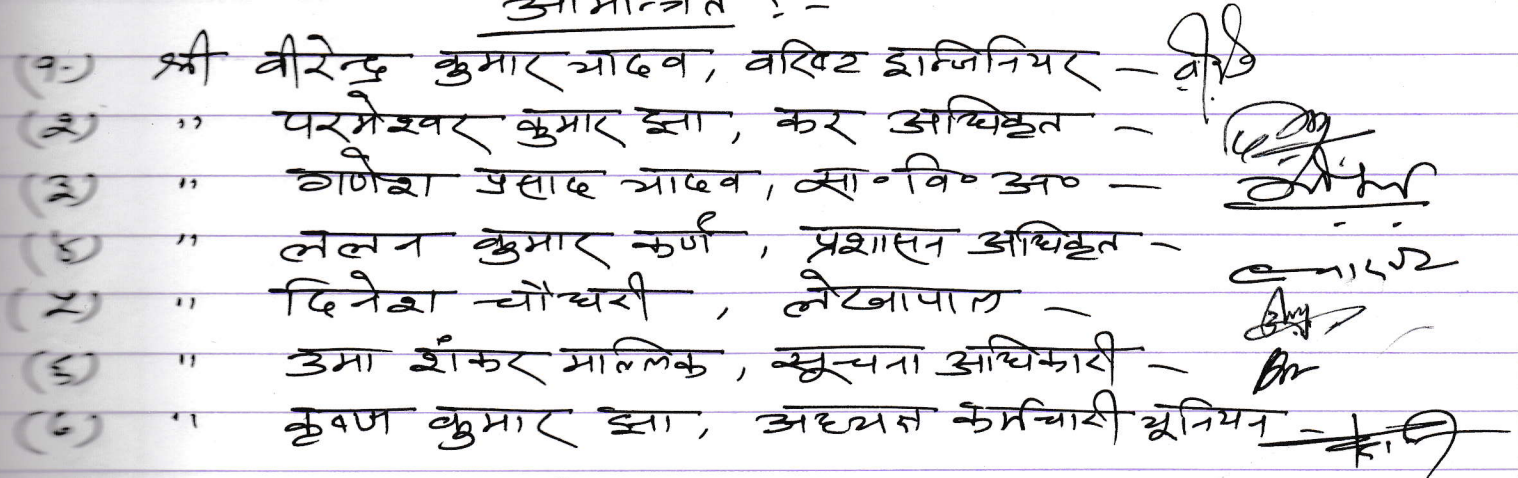 आमान्त्रित :-
(१-) श्री वीरेन्द्र कुमार यादव, वरिष्ट इान्जिनियर -
(२) " परमेश्वर कुमार झा, कर अधिकृत -
(३) " गणेश प्रसाद यादव, सा॰ वि॰ अ॰ -
(४) " ललन कुमार कर्ण, प्रशासन अधिकृत -
(५) " दिनेश चौधरी, लेखापाल -
(६) " उमा शंकर माल्लिक, सूचना अधिकारी -
(७) " कृष्ण कुमार झा, अध्यक्ष कर्मचारी यूनियन -